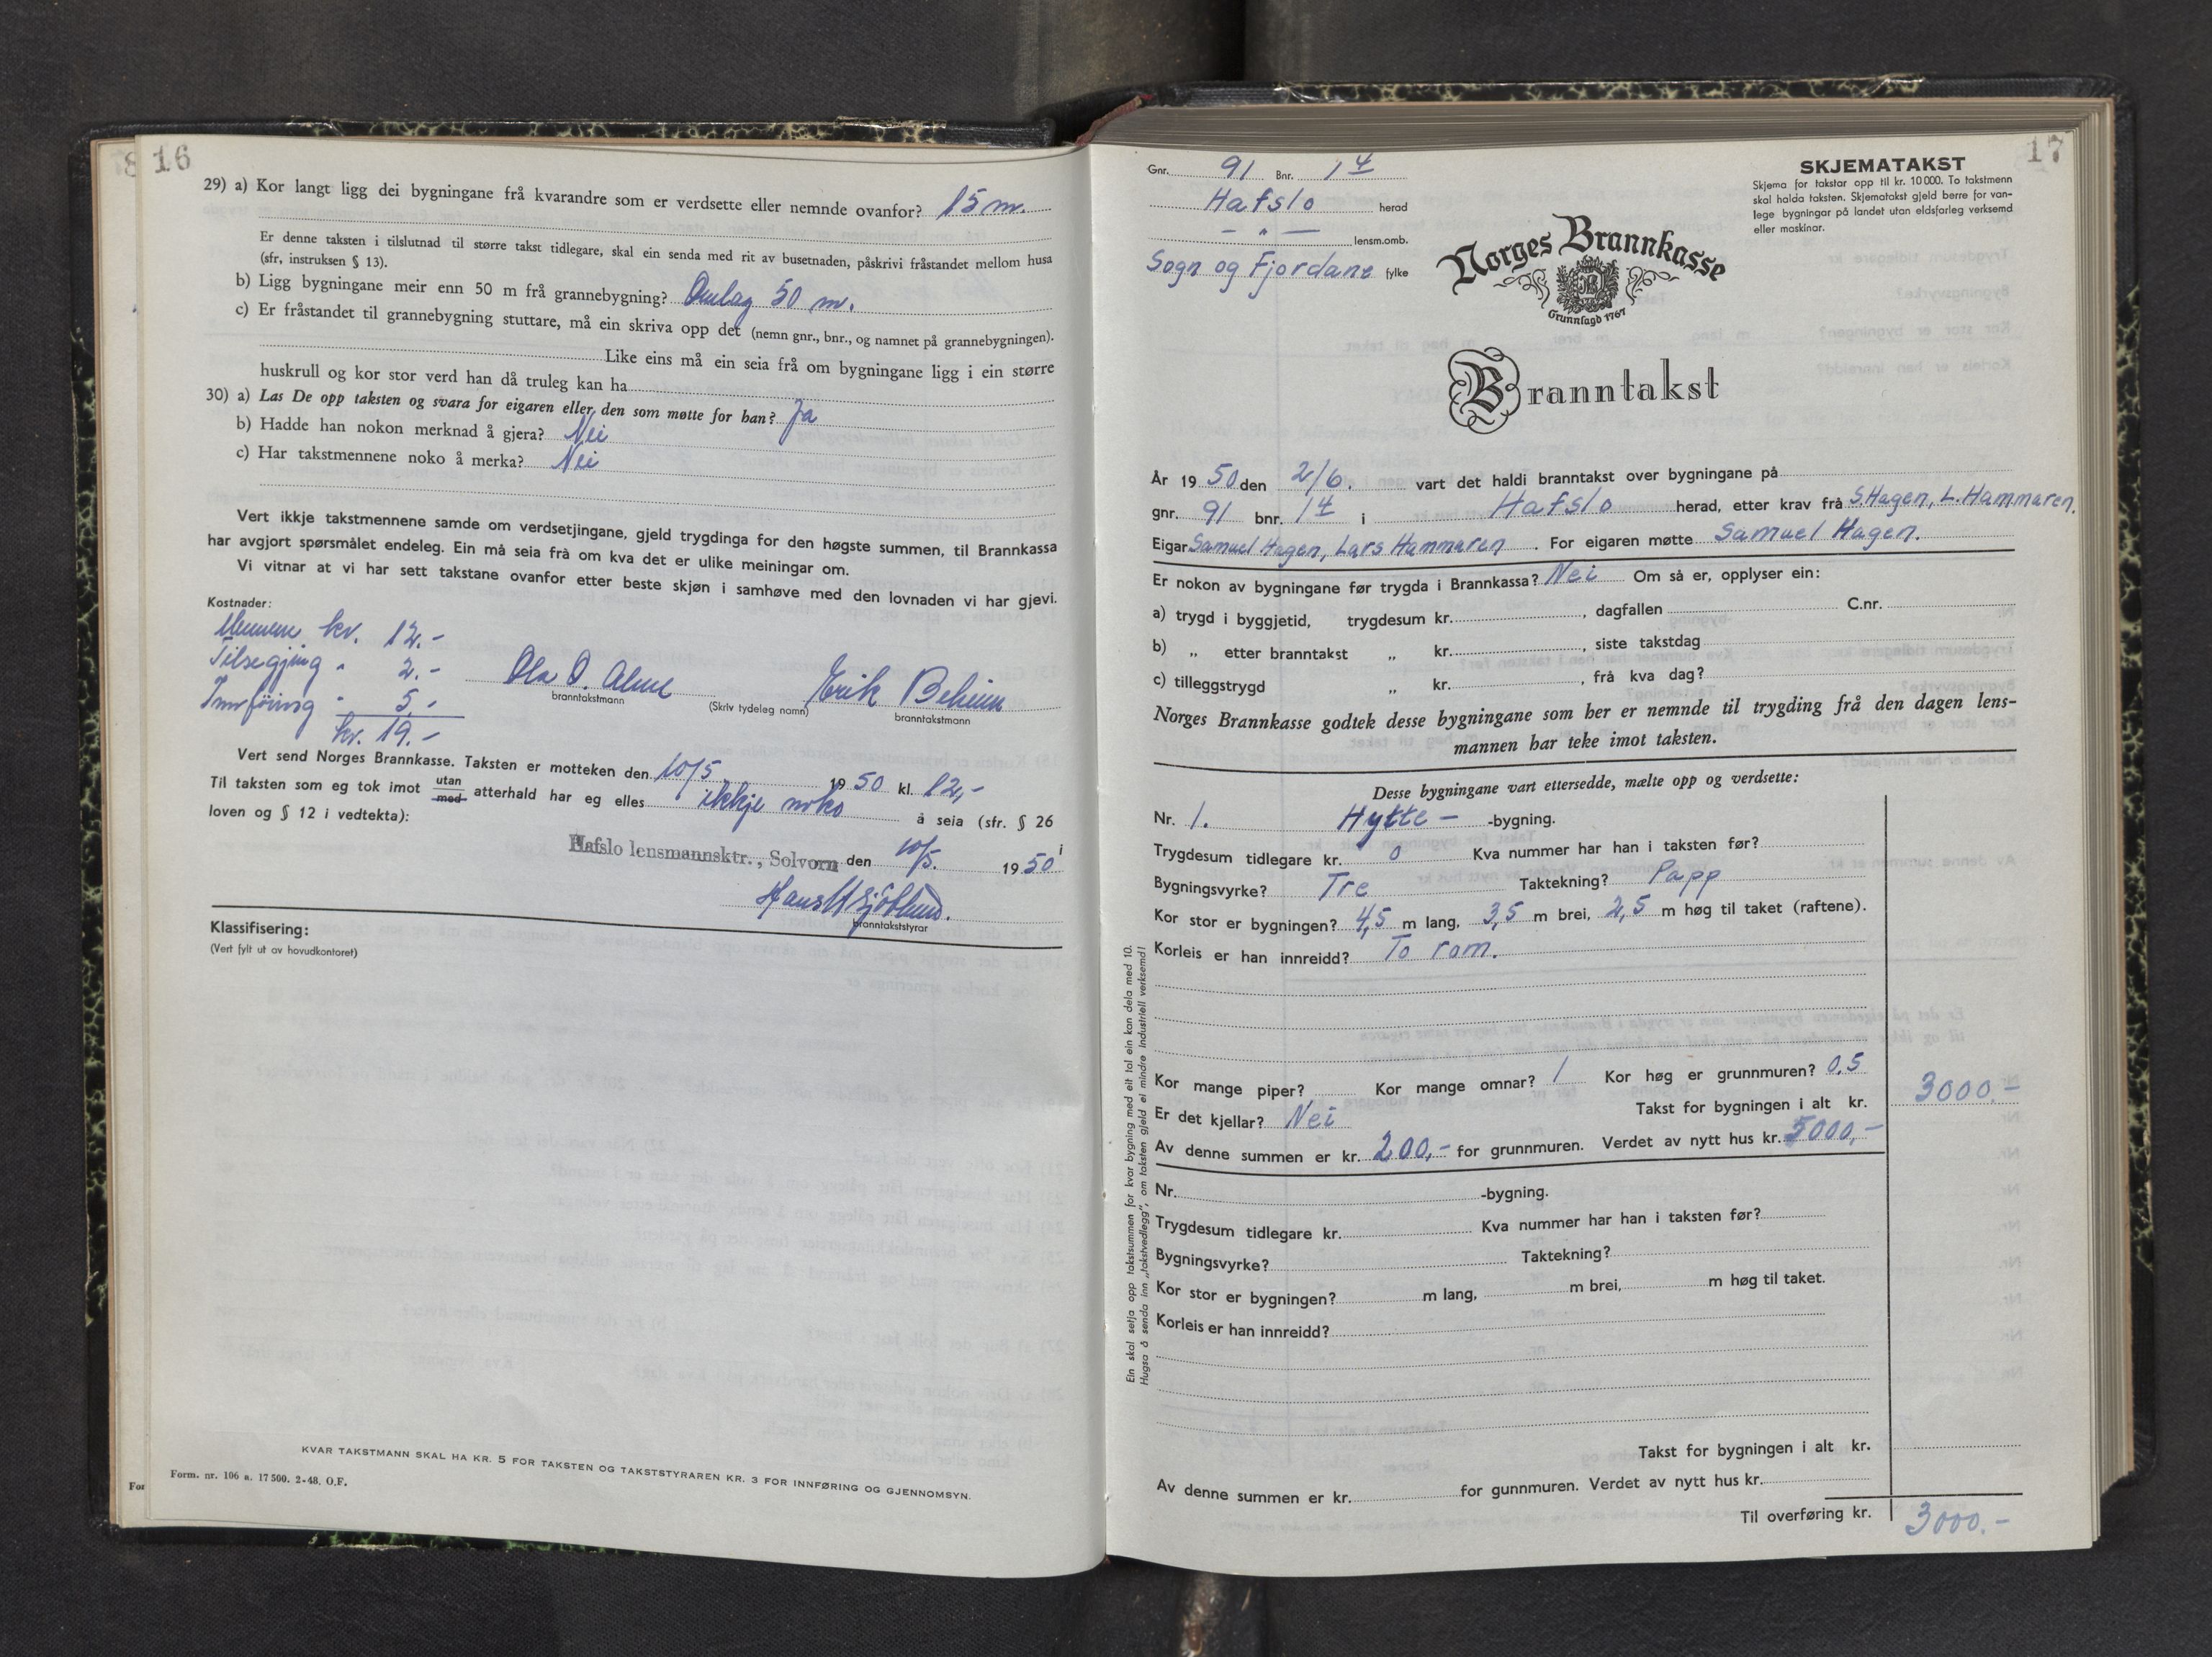 8 16
29) a) Kor langt ligg dei bygningane frå kvarandre som er verdsette eller nemnde ovanfor? 15 m.
Er denne taksten i tilslutnad til større takst tidlegare, skal ein senda med rit av busetnaden, påskrivi fråstandet mellom husa
(sfr, instruksen § 13).
b) Ligg bygningane meir enn 50 m frå grannebygning? Omlag 50 m.
c) Er fråstandet til grannebygning stuttare, må ein skriva opp det (nemn gnr., bnr., og namnet på grannebygningen).
Like eins må ein seia frå om bygningane ligg i ein større
huskrull og kor stor verd han då truleg kan ha
30) a) Las De opp taksten og svara for eigaren eller den som møtte for han? Ja
b) Hadde han nokon merknad å gjera? Nei
c) Har takstmennene noko å merka? Nei
Vert ikkje takstmennene samde om verdsetjingane, gjeld trygdinga for den høgste summen, til Brannkassa
har avgjort spørsmålet endeleg. Ein må seia frå om kva det er ulike meiningar om.
Vi vitnar at vi har sett takstane ovanfor etter beste skjøn i samhøve med den lovnaden vi har gjevi.
Kostnader:
kr. 12.-
Tilsegjing " 2.-
Innføring " 5.-
kr. 19.-
Ola O. Alme Erik Beheim
branntakstmann (Skriv tydeleg namn) branntakstmann
Vert send Norges Brannkasse. Taksten er motteken den 10/5 1950 kl. 12,-
Til taksten som eg tok imot utan med atterhald har eg elles ikkje noko å seia (sfr. § 26
loven og § 12 i vedtekta):
Hafslo lensmannsktr., Solvorn den 10/5. 1950
branntakststyrar
Klassifisering:
(Vert fylt ut av hovudkontoret)
KVAR TAKSTMANN SKAL HA KR. 5 FOR TAKSTEN OG TAKSTSTYRAREN KR. 3 FOR INNFØRING OG GJENNOMSYN.
Form. nr. 106 a. 17 500. 2-48. O.F.
For
17
Gnr. 91 Bnr. 14
Hafslo herad
- " - lensm.omb.
Sogn og Fjordane fylke
SKJEMATAKST
Skjema for takstar opp til kr. 10 000. To takstmenn
skal halda taksten. Skjematakst gjeld berre for van-
lege bygningar på landet utan eldsfarleg verksemd
eller maskinar.
Norges Brannkasse
Grunnlagd 1767
Branntakst
År 1950 den 2/6. vart det haldi branntakst over bygningane på
gnr. 91 bnr. 14 i Hafslo herad, etter krav frå S. Hagen, L. Hammaren.
Eigar Samuel Hagen, Lars Hammaren. For eigaren møtte Samuel Hagen.
Er nokon av bygningane før trygda i Brannkassa? Nei Om så er, opplyser ein:
a) trygd i byggjetid, trygdesum kr. , dagfallen C.nr.
b) „ etter branntakst „ kr. , siste takstdag
c) tilleggstrygd „ kr. , frå kva dag?
Norges Brannkasse godtek desse bygningane som her er nemnde til trygding frå den dagen lens-
mannen har teke imot taksten.
Desse bygningane vart ettersedde, mælte opp og verdsette:
Nr. 1. Hytte - -bygning.
Trygdesum tidlegare kr. 0 Kva nummer har han i taksten før?
Bygningsvyrke? Tre Taktekning? Papp
Kor stor er bygningen? 4,5 m lang, 3,5 m brei, 2,5 m høg til taket (raftene).
Korleis er han innreidd? To rom.
Kor mange piper? Kor mange omnar? 1 Kor høg er grunnmuren? 0,5
Er det kjellar? Nei Takst for bygningen i alt kr. 3000.-
Av denne summen er kr. 200,- for grunnmuren. Verdet av nytt hus kr. 5000,-
Nr. -bygning.
Trygdesum tidlegare kr. Kva nummer har han i taksten før?
Bygningsvyrke? Taktekning?
Kor stor er bygningen? m lang, m brei, m høg til taket.
Korleis er han innreidd?
Takst for bygningen i alt kr.
Av denne summen er kr. for gunnmuren. Verdet av nytt hus kr.
Til overføring kr. 3000.-
Ein skal setja opp takstsummen for kvar bygning med eit tal ein kan dela med 10.
Hugsa å senda inn „takstvedlegg", om taksten gjeld ei mindre industriell verksemd!